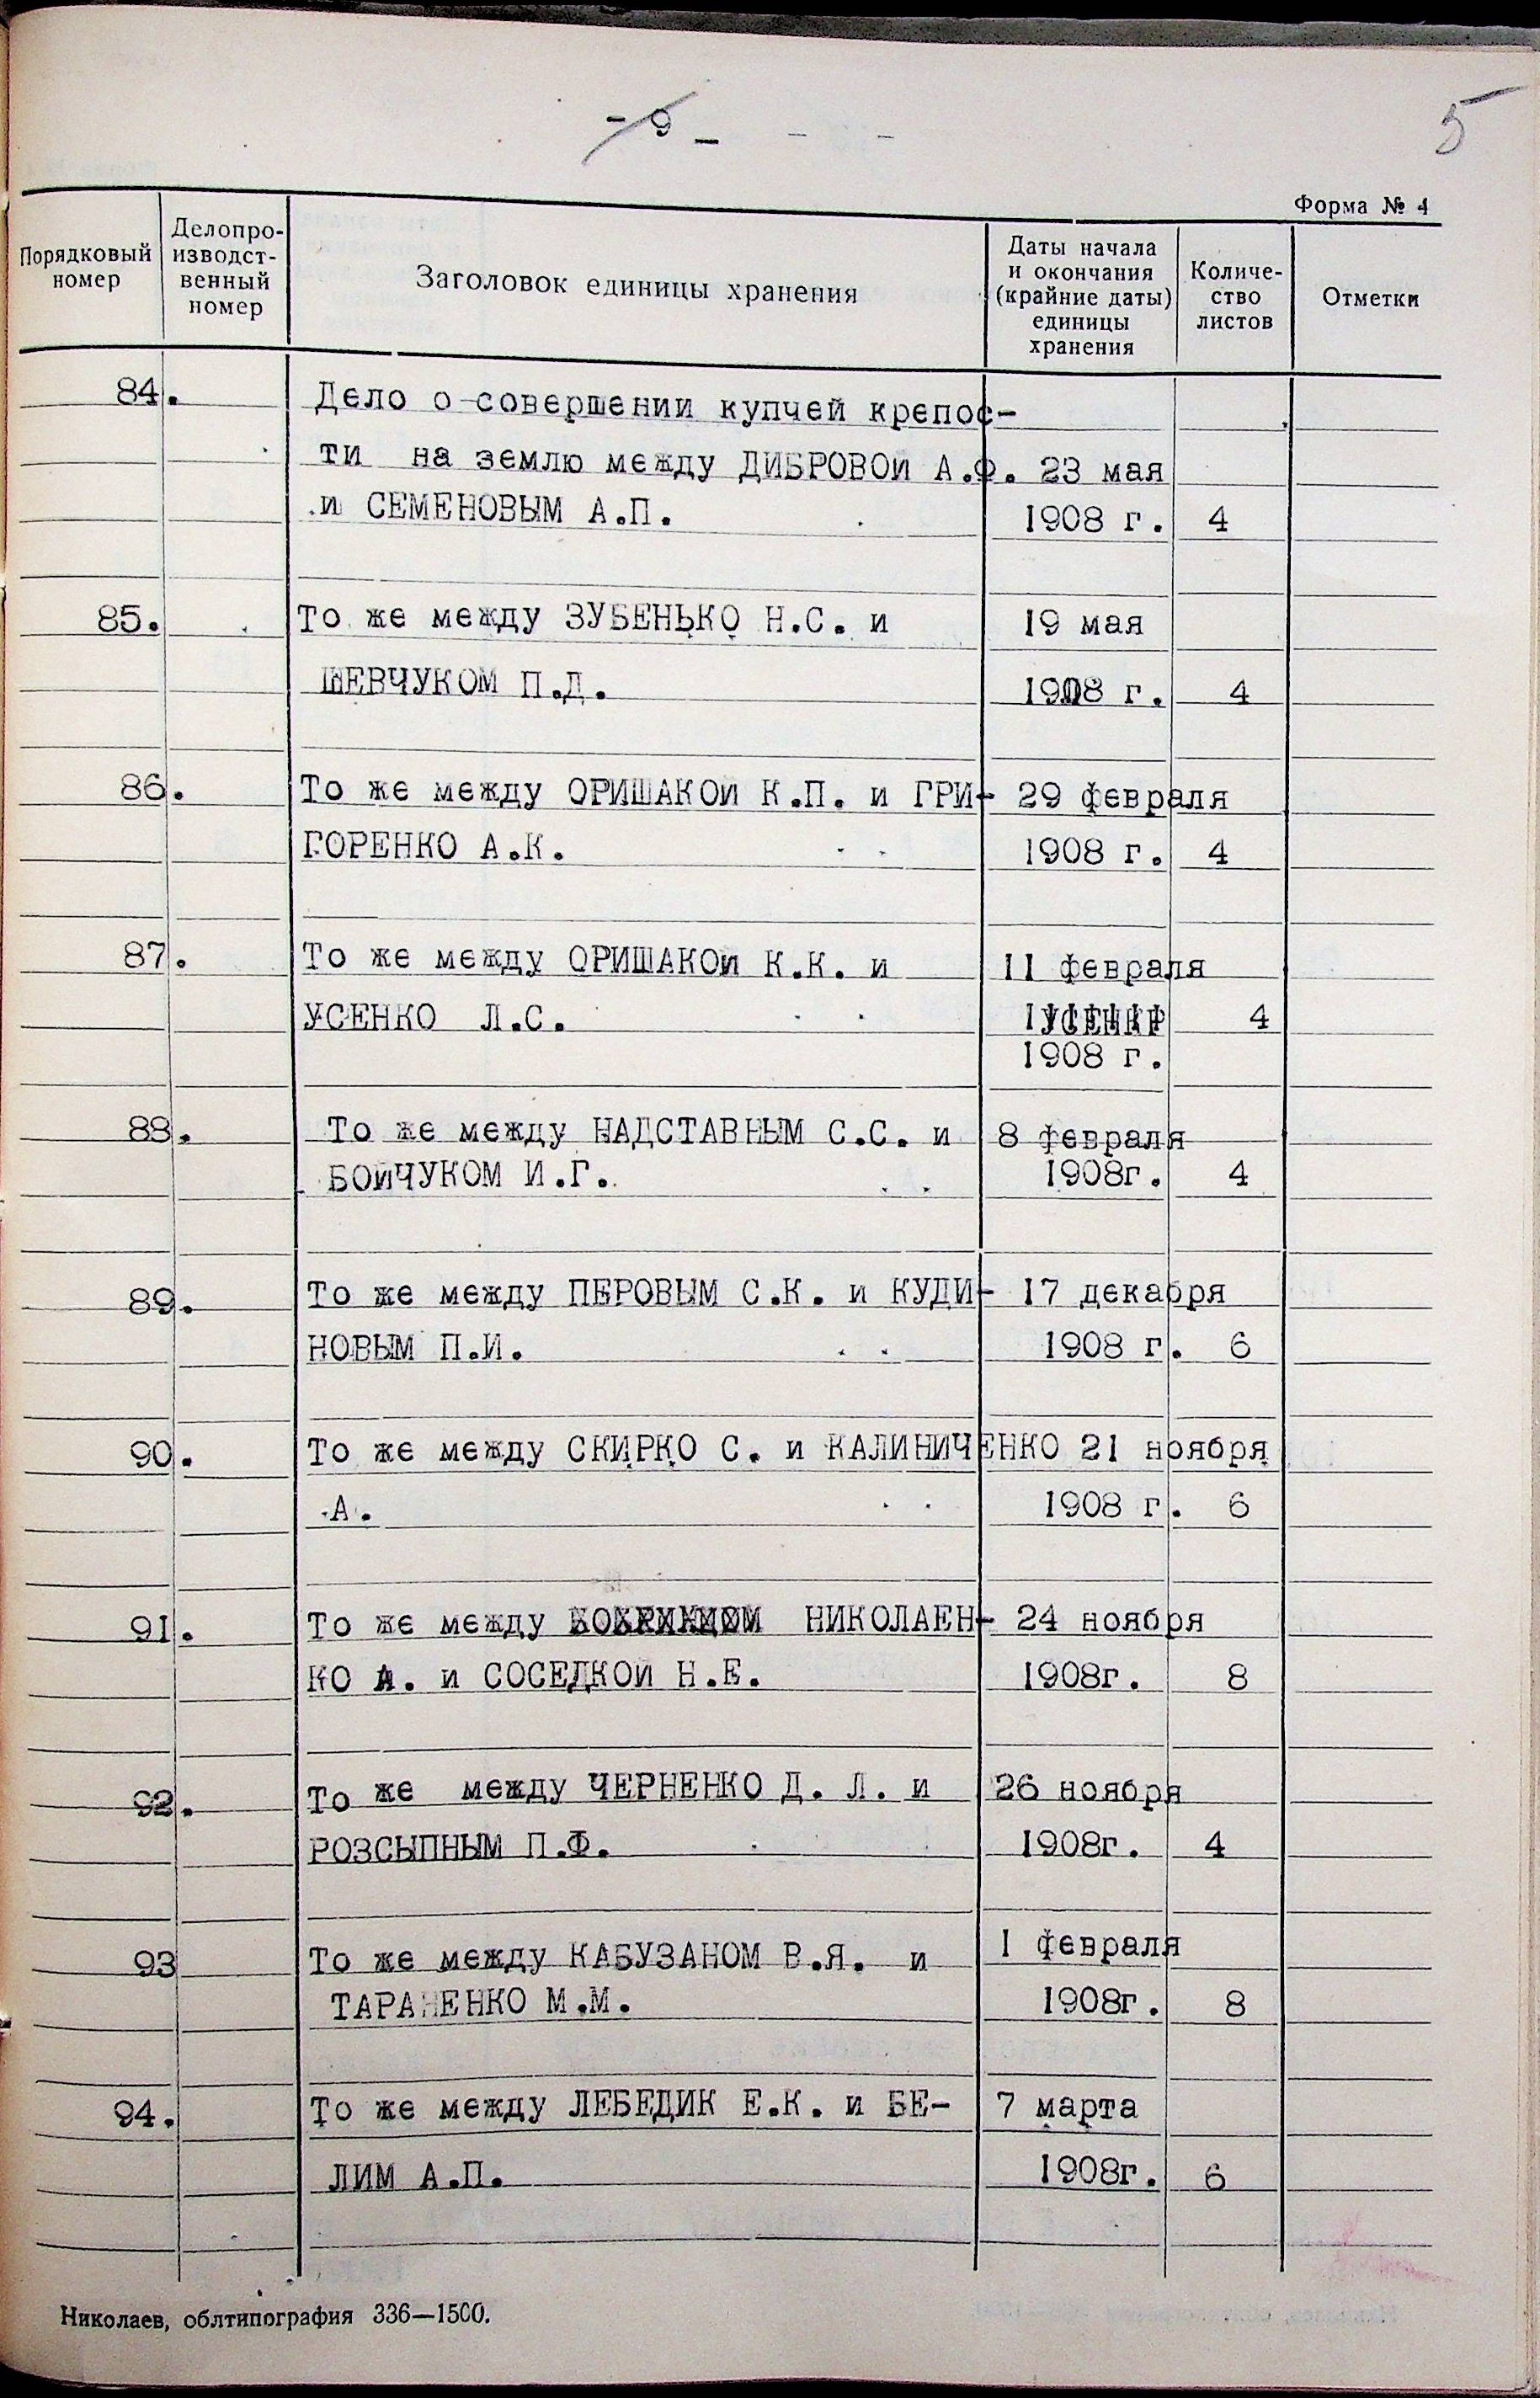 - 9 -
5
Форма № 4
Порядковый номер
Делопро-
изводст-
венный
номер
Заголовок единицы хранения
Даты начала
и окончания
(крайние даты)
единицы
хранения
Количе-
ство
листов
Отметки
84. Дело о совершении купчей крепос-
ти на землю между ДИБРОВОЙ А.Ф. 23 мая
и СЕМЕНОВЫМ А.П. 1908 г. 4
85. То же между ЗУБЕНЬКО Н.С. и 19 мая
ШЕВЧУКОМ П.Д. 1908 г. 4
86. То же между ОРИШАКОЙ К.П. и ГРИ- 29 февраля
ГОРЕНКО А.К. 1908 г. 4
87. То же между ОРИШАКОЙ К.К. и 11 февраля
УСЕНКО Л.С. 4
1908 г.
88. То же между НАДСТАВНЫМ С.С. и 8 февраля
БОЙЧУКОМ И.Г. 1908г. 4
89. То же между ПЕРОВЫМ С.К. и КУДИ- 17 декабря
НОВЫМ П.И. 1908 г. 6
90. То же между СКИРКО С. и КАЛИНИЧЕНКО 21 ноября
А. 1908 г. 6
91. То же между НИКОЛАЕН- 24 ноября
КО А. и СОСЕДКОЙ Н.Е. 1908г. 8
92. То же между ЧЕРНЕНКО Д. Л. и 26 ноября
РОЗСЫПНЫМ П.Ф. 1908г. 4
93 То же между КАБУЗАНОМ В.Я. и 1 февраля
ТАРАНЕНКО М.М. 1908г. 8
94. То же между ЛЕБЕДИК Е.К. и БЕ- 7 марта
ЛИМ А.П. 1908г. 6
Николаев, облтипография 336—1500.